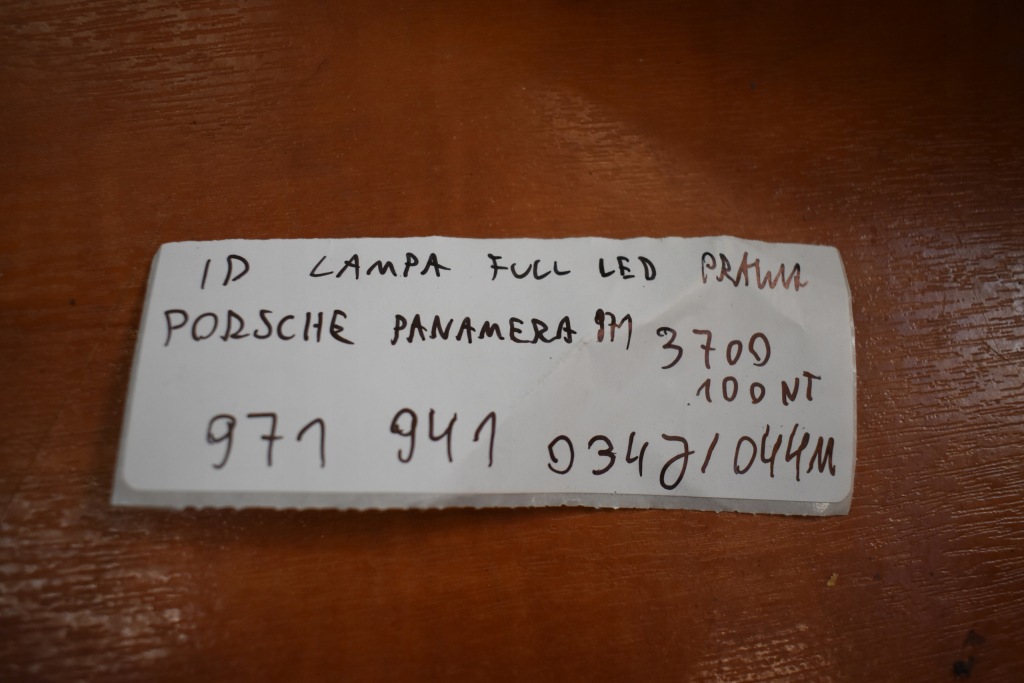 ID LAMPA FULL LED PRAWA
PORSCHE PANAMERA 971 3700
100 NT
971 941 034J/044M